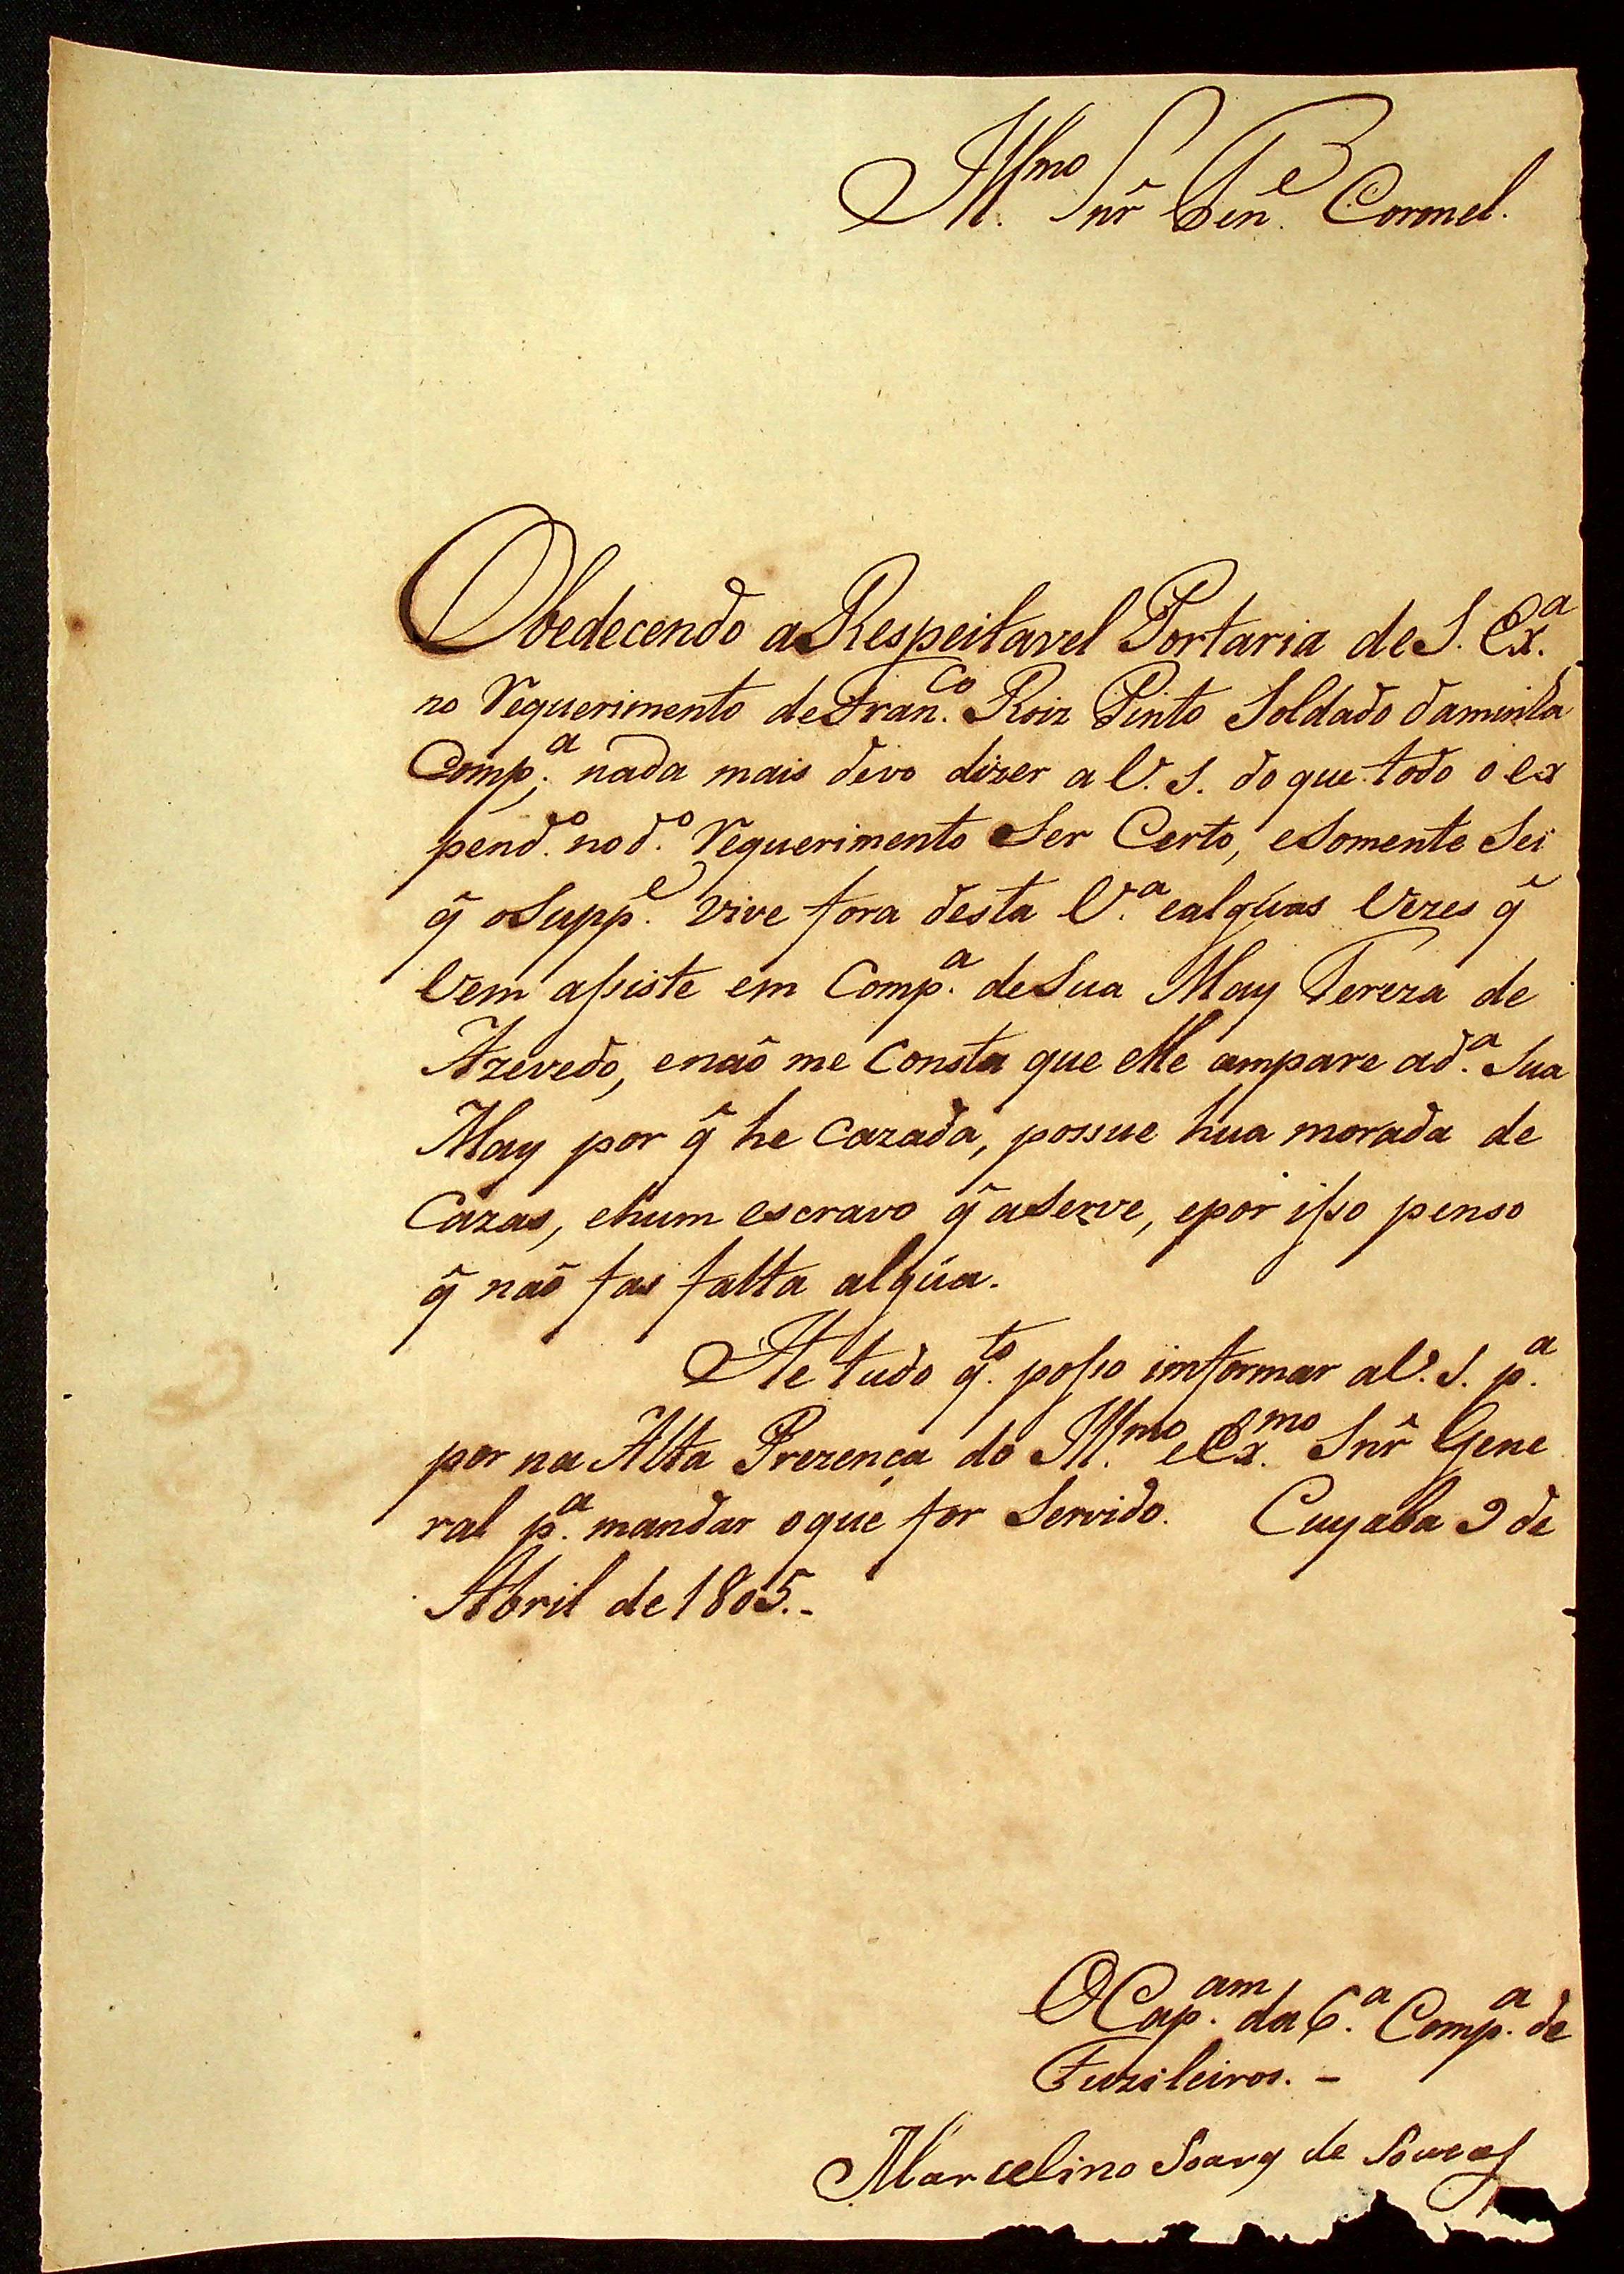 Ill.mo Snr̃ Ten.e Coronel.
Obedecendo a Respeitavel Portaria de S. Ex.a
no Requerimento de Fran.co Roiz Pinto Soldado da minha
Comp.a nada mais devo dizer a V. S. do que todo o ex
pend.o no d.o Requerimento Ser Certo, e Somente Sei
q̃ o Supp.e vive fora desta V.a e algúas Vezes q̃
Vem asiste em Comp.a de Sua May Tereza de
Azevedo, e naõ me Consta que elle ampare a d.a Sua
May por q̃ he Cazada, possue hua morada de
Cazas, e hum escravo q̃ a Serve, e por iſso penso
q̃ naõ fas falta algúa.
He tudo q.to poſso imformar a V. S. p.a
por na Alta Prezença do Ill.mo e Ex.mo Snr̃ Gene
ral p.a mandar o que for Servido. Cuyaba 9 de
Abril de 1805.-
O Cap.am da 6.a Comp.a de
Fuzileiros. -
Marcelino Soarẽs de